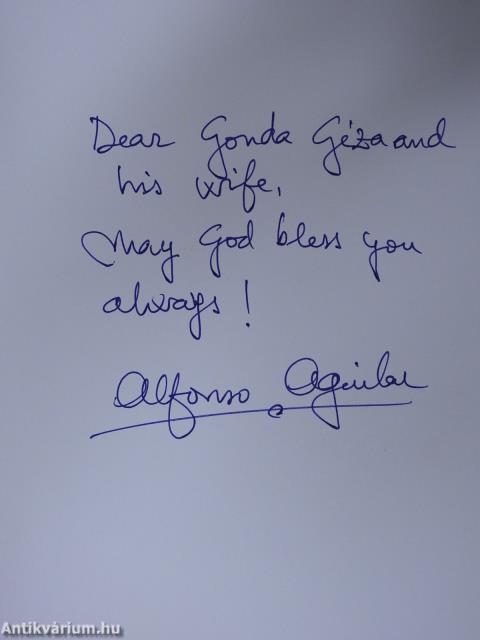 Dear Gonda Géza and
his wife,
May God bless you
always!
Alfonso Aguilar
Antikvárium.hu